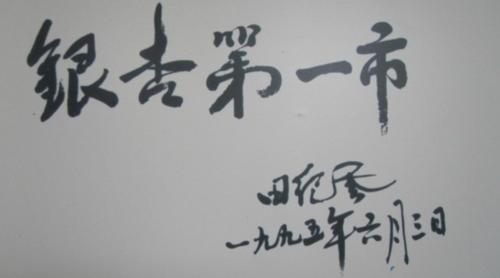 銀杏第一市
田纪雲
一九九五年六月三日